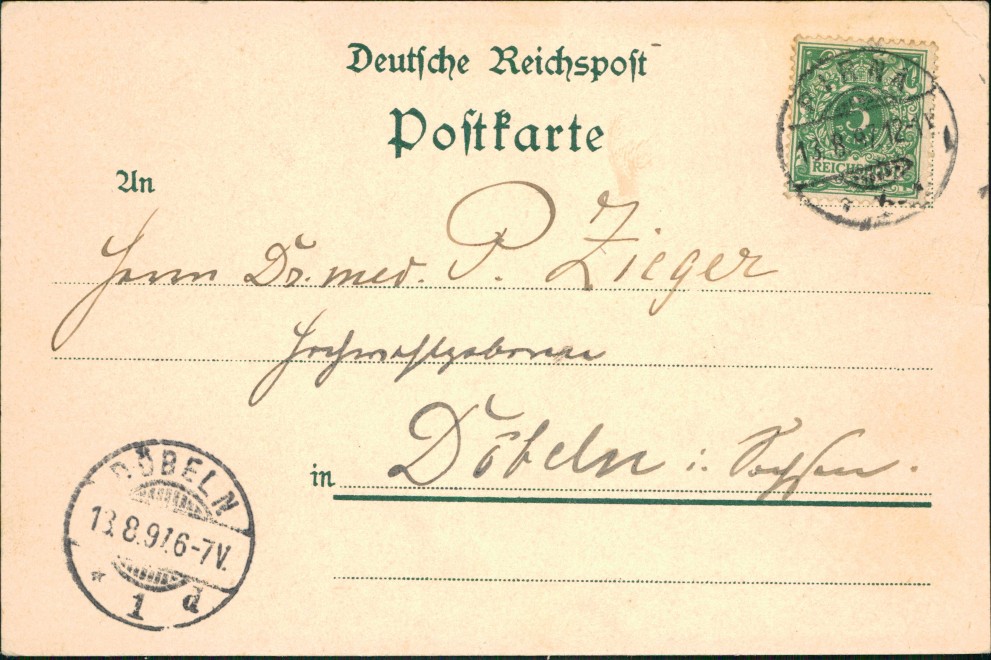 Deutsche Reichspost
Postkarte
An
5
REICHSPOST
13.8.97 12-1
Herrn Dr. med. P. Zieger
Hochwohlgeboren
in Döbeln i. Sachsen.
DÖBELN
13.8.97 6-7V.
* 1 d